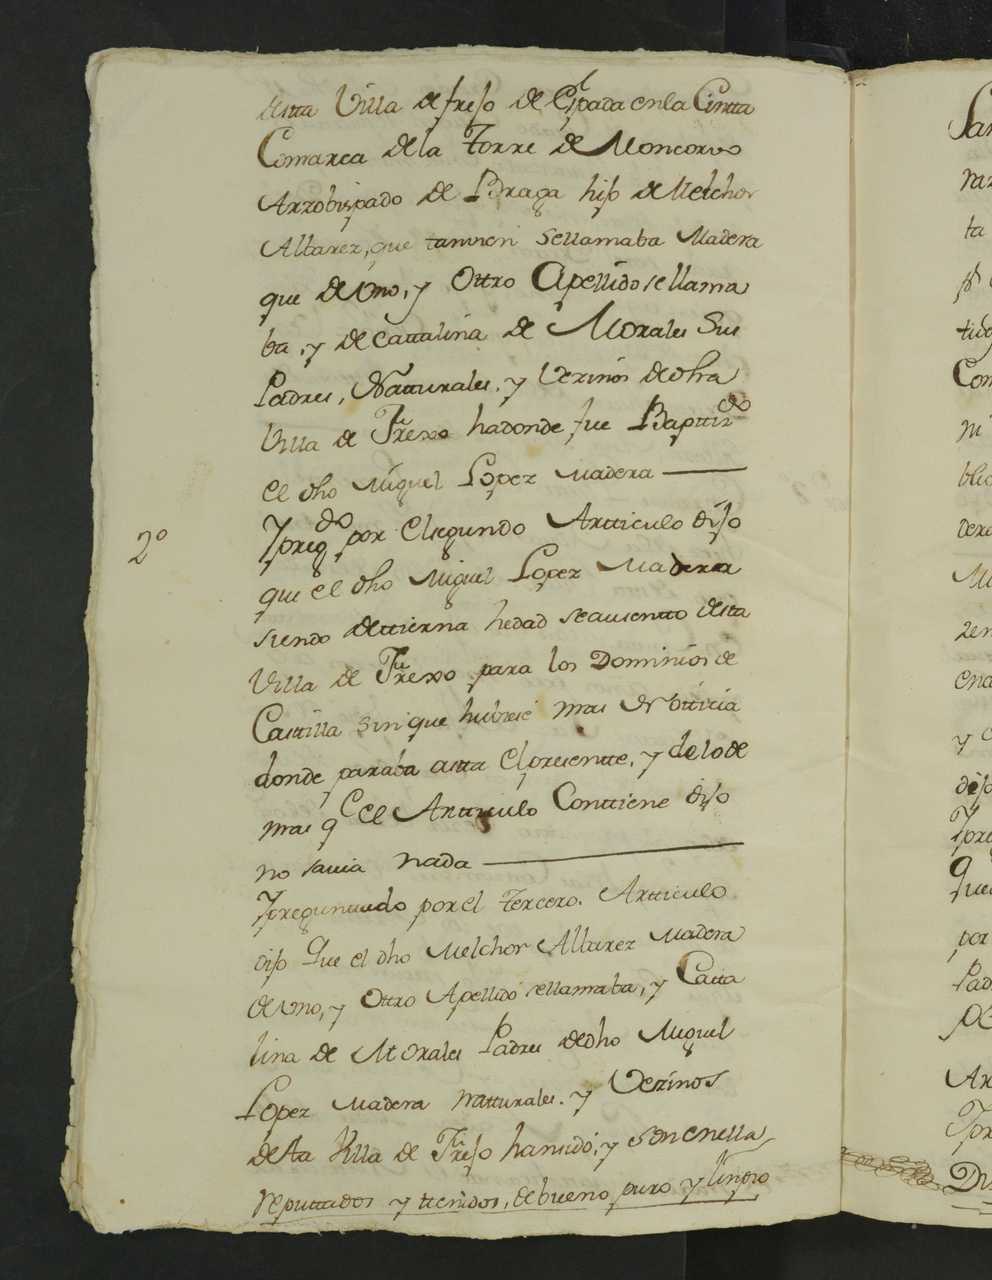 desta Villa de frejo de Espada en la Cintta
Comarca de la Torre de Moncorvo
Arzobispado de Braga hijo de Melchor
Albarez, que tamvien se llamaba Madera
que de Uno, y Ottro Apellido se llama
ba, y de Cattalina de Morales Sus
Padres, Natturales, y Vezinos de dha
Villa de Frexo hadonde fue Bapttizdo
el dho Miguel Lopez Madera
2º
Y pregdo por el segundo Artticulo dijo
que el dho Miguel Lopez Madera
siendo de ttierna hedad se ausentto desta
Villa de Frexo para los Dominios de
Casttilla sin que hubiese mas Notticia
donde paraba astta el presentte, y de lo de
mas qe el Artticulo Conttiene dijo
no savia nada
Y preguntado por el Tercero Artticulo
dijo Que el dho Melchor Albarez Madera
de Uno, y Ottro Apellido se llamaba, y Catta
lina de Morales Padres de dho Miguel
Lopez Madera natturales, y Vezinos
desta Villa de Frejo han sido, y son en ella
reputtados y ttenidos, de bueno puro y limpio
San
ta
Com
ni
dera
y
por
Pad